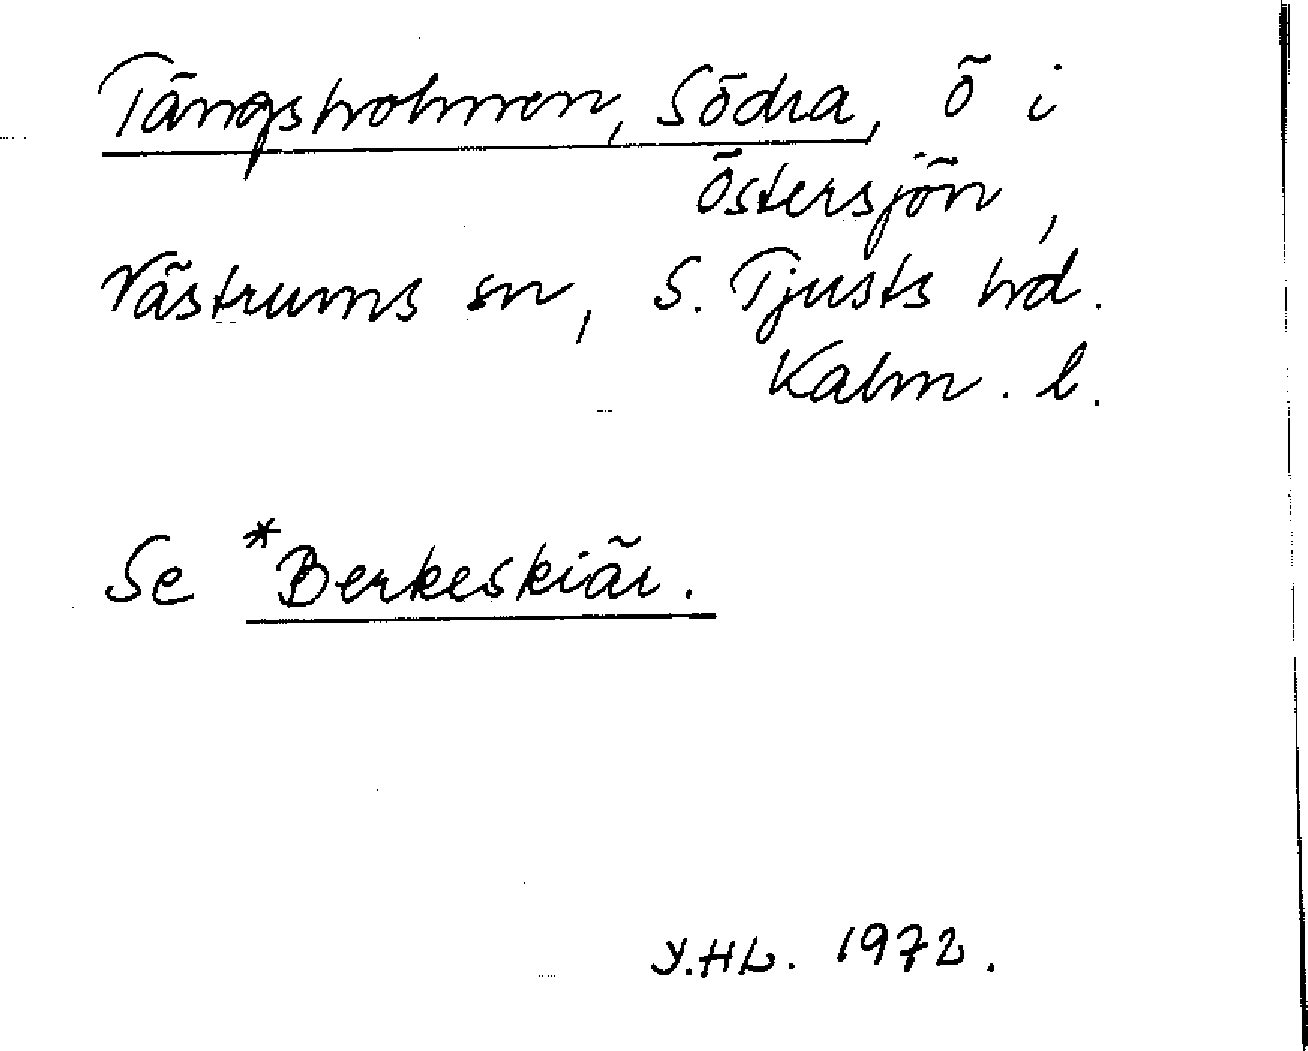 Tängsholmen, Södra, ö i
Östersjön,
Västrums sn, S. Tjusts hd.
Kalm. l.
Se *Berkeskiär.
Y.HL. 1972.